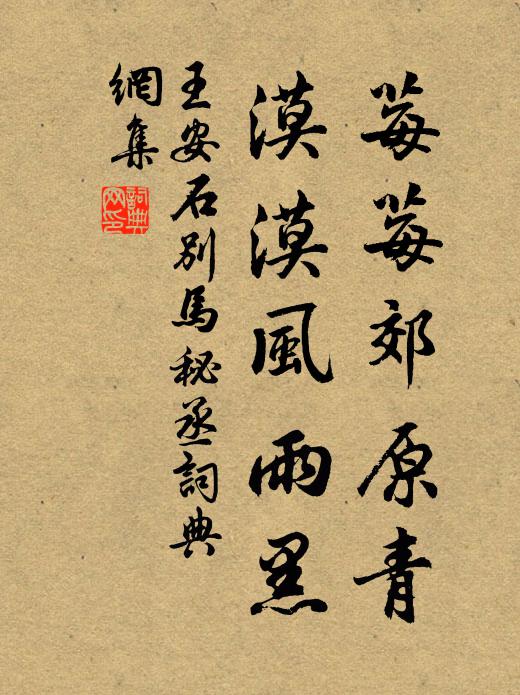 莓莓郊原青
漠漠風雨黑
王安石別馬秘丞詞典
網集
詞典
网印